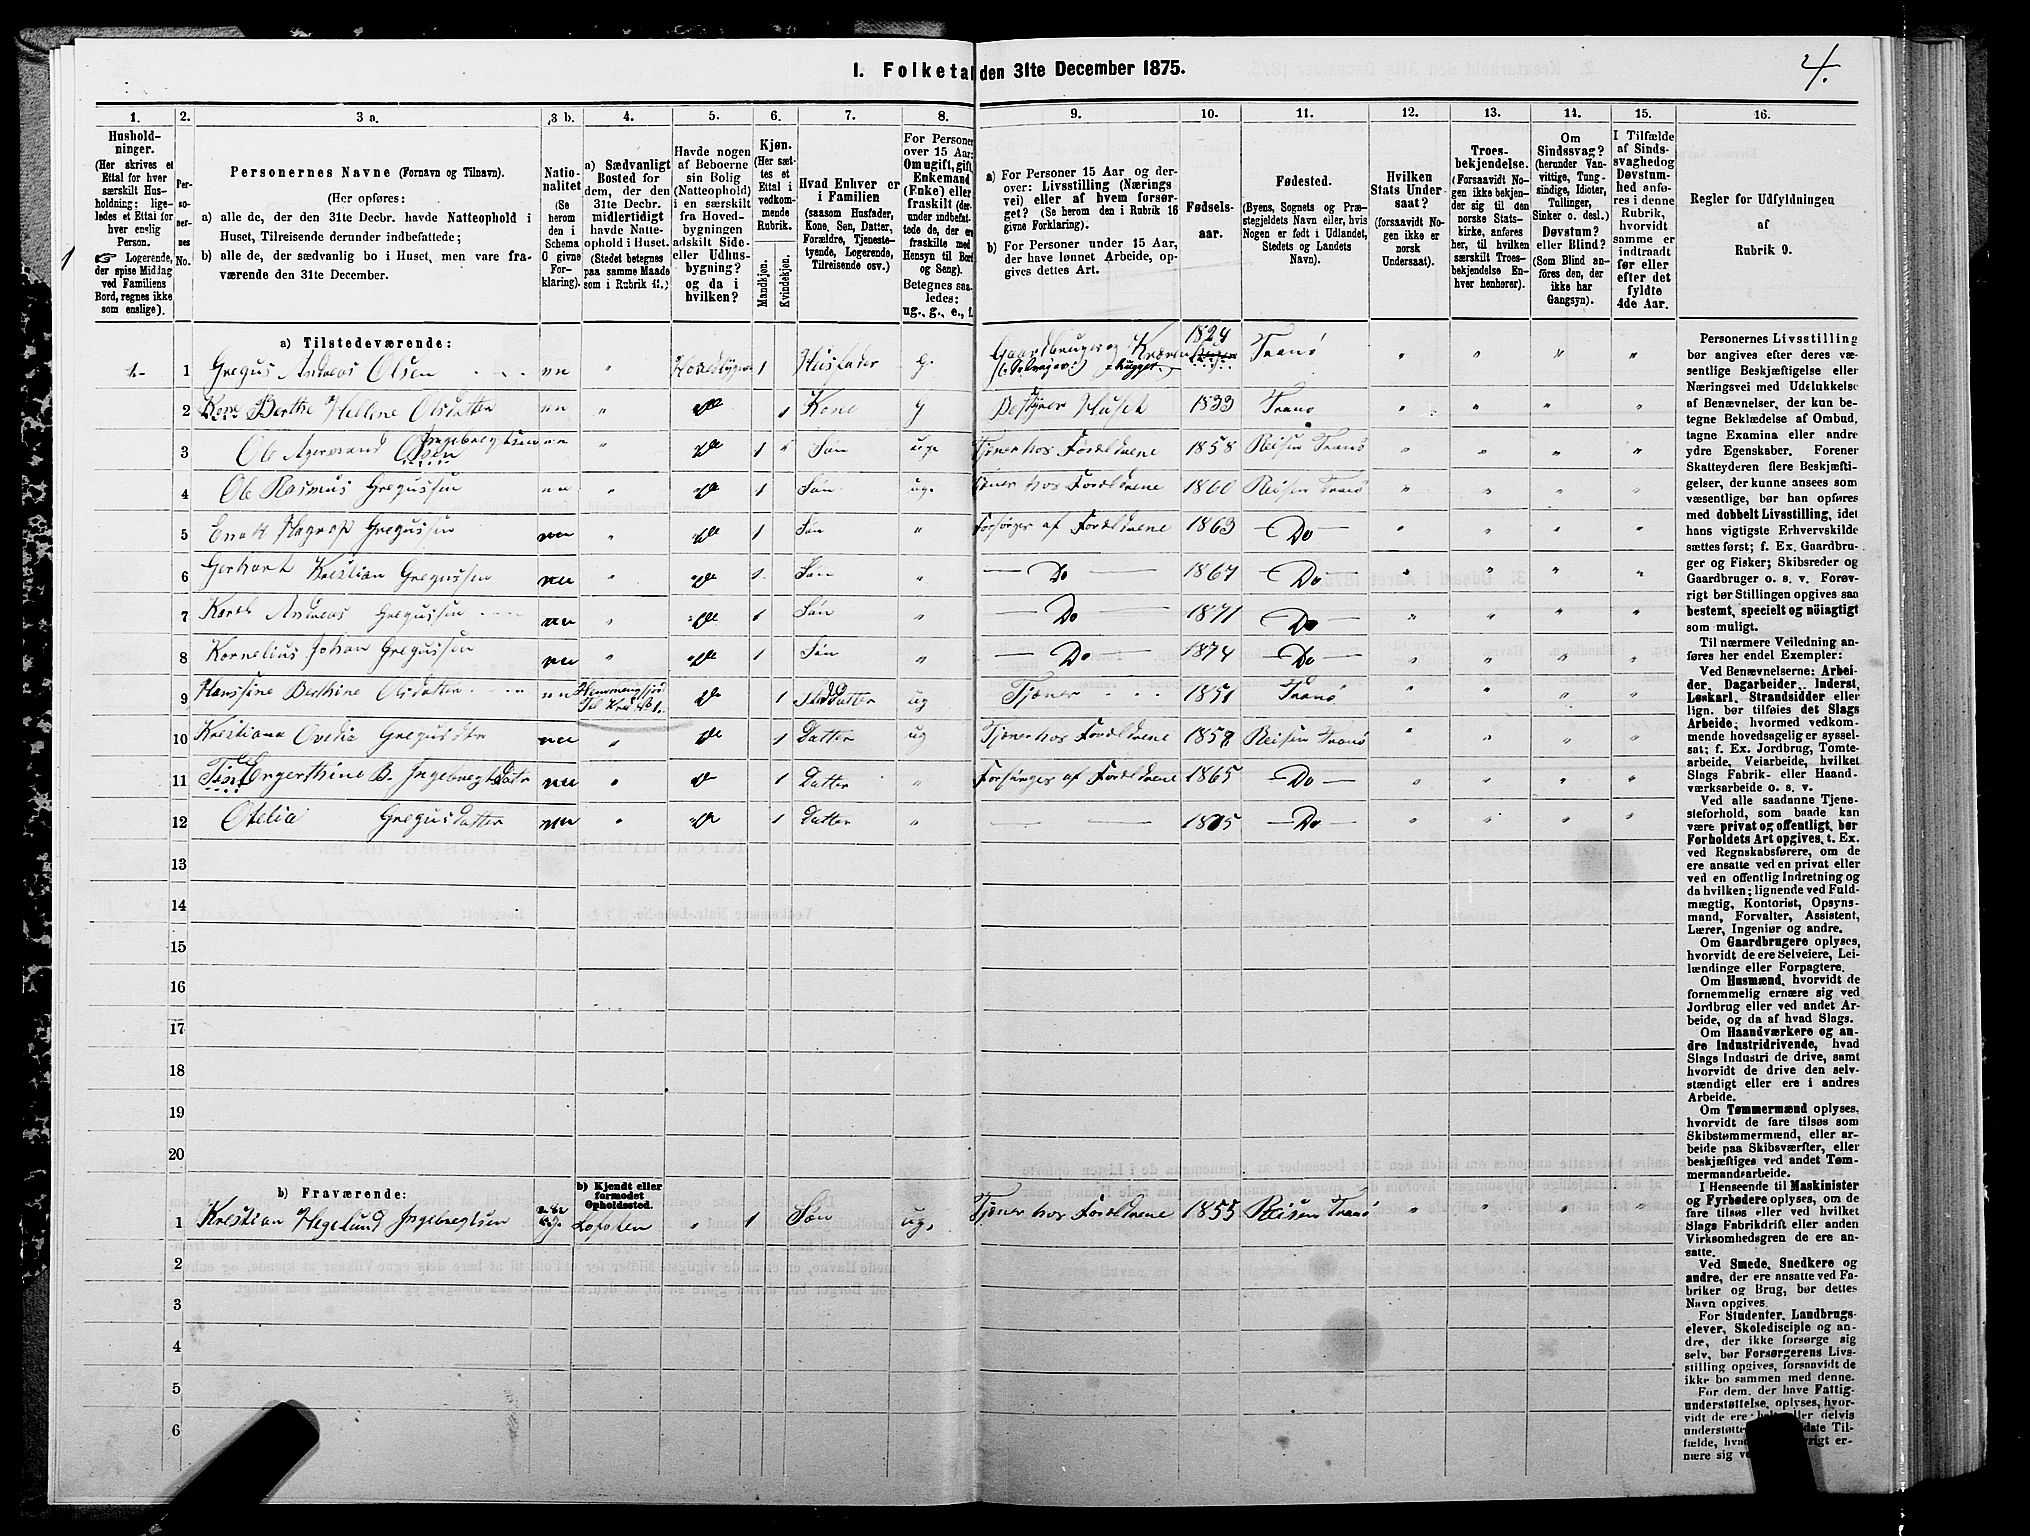 4.
I. Folketal den 31te December 1875.
1.
Hushold-
ninger.
(Her skrives et
Ettal for hver
særskilt Hus-
holdning; lige-
ledes et Ettal for
hver enslig
Person.
☞ Logerende,
der spise Middag
ved Familiens
Bord, regnes ikke
som enslige).
2.
Per-
so-
ner-
nes
No.
3 a.
Personernes Navne (Fornavn og Tilnavn).
(Her opføres:
a) alle de, der den 31te Decbr. havde Natteophold i
Huset, Tilreisende derunder indbefattede;
b) alle de, der sædvanlig bo i Huset, men vare fra-
værende den 31te December.
3 b.
Natio-
nalitet
(Se
herom
den i
Schema
O givne
For-
klaring).
4.
a) Sædvanligt
Bosted for
dem, der den
31te Decbr.
midlertidigt
havde Natte-
ophold i Huset.
(Stedet betegnes
paa samme Maade
som i Rubrik 11.)
5.
Havde nogen
af Beboerne
sin Bolig
(Natteophold)
i en særskilt
fra Hoved-
bygningen
adskilt Side-
eller Udhus-
bygning?
og da i
hvilken?
6.
Kjøn.
(Her sæt-
tes et
Ettal i
vedkom-
mende
Rubrik.
Mandkjøn.
Kvindekjøn.
7.
Hvad Enhver er
i Familien
(saasom Husfader,
Kone, Søn, Datter,
Forældre, Tjeneste-
tyende, Logerende,
Tilreisende osv.)
8.
For Personer
over 15 Aar:
Om ugift, gift,
Enkemand
(Enke) eller
fraskilt (der-
under indbefat-
tede de, der ere
fraskilte med
Hensyn til Bord
og Seng).
Betegnes saa-
ledes:
ug., g., e., f.
9.
a) For Personer 15 Aar og der-
over: Livsstilling (Nærings-
vei) eller af hvem forsør-
get? (Se herom den i Rubrik 16
givne Forklaring).
b) For Personer under 15 Aar,
der have lønnet Arbeide, op-
gives dettes Art.
10.
Fødsels-
aar.
11.
Fødested.
(Byens, Sognets og Præ-
stegjeldets Navn eller, hvis
Nogen er født i Udlandet,
Stedets og Landets
Navn).
12.
Hvilken
Stats Under-
saat?
(forsaavidt No-
gen ikke er
norsk
Undersaat).
13.
Troes-
bekjendelse.
(Forsaavidt No-
gen ikke bekjen-
der sig til den
norske Stats-
kirke, anføres
her, til hvilken
særskilt Troes-
bekjendelse En-
hver henhører).
14.
Om
Sindssvag?
(herunder Van-
vittige, Tung-
sindige, Idioter,
Tullinger,
Sinker o. desl.)
Døvstum?
eller Blind?
(Som Blind an-
føres den, der
ikke har
Gangsyn).
15.
I Tilfælde
af Sinds-
svaghed og
Døvstum-
hed anfø-
res i denne
Rubrik,
hvorvidt
samme er
indtraadt
før eller
efter det
fyldte
4de Aar.
16.
Regler for Udfyldningen
af
Rubrik 9.
a) Tilstedeværende:
1 Gregus Andreas Olsen nn " 1 Husfader g. Gaardbruger og 1824 Tranø
2 Kone Berthe Hellene Olsdatter nn " Do 1 Kone g Bestyrer Huset 1833 Tranø
3 Ole Ingebregtsen Olsen nn " Do 1 Søn ug. Tjener hos Forældrene 1858 Reisen Tranø
4 Ole Rasmus Gregussen nn " Do 1 Søn ug. Tjener hos Forældrene 1860 Reisen Tranø
5 Gregussen nn " Do 1 Søn " Forsørges af Forældrene 1863 Do
6 Gerhart Kristian Gregussen nn " Do 1 Søn " Do 1867 Do
7 Karel Andreas Gregussen nn " Do 1 Søn " Do 1871 Do
8 Kornelius Johan Gregussen nn " Do 1 Søn " Do 1874 Do
9 Hanssine Berthine Olsdatter nn Do 1 Datter ug Tjener 1851 Tranø
10 Kristiana Ovedia Gregusdtr nn " Do 1 Datter ug Tjener hos Forældrene 1858 Reisen Tranø
11 Engerthine B. Ingebregtsdatr nn " Do 1 Datter " Forsørges af Forældrene 1865 Do
12 Otelia Gregusdatter nn " Do 1 Datter " 1875 Do
13
14
15
16
17
18
19
20
b) Fraværende:
b) Kjendt eller
formodet
Opholdssted.
1 Kristian Hegelund Ingebregtsen Lofoten " 1 Søn ug. Tjener hos Forældrene 1855 Reisen Tranø
2
3
4
5
6
Personernes Livsstilling
bør angives efter deres væ-
sentlige Beskjæftigelse eller
Næringsvei med Udelukkelse
af Benævnelser, der kun be-
tegne Beklædelse af Ombud,
tagne Examina eller andre
ydre Egenskaber. Forener
Skatteyderen flere Beskjæfti-
gelser, der kunne ansees som
væsentlige, bør han opføres
med dobbelt Livsstilling, idet
hans vigtigste Erhvervskilde
sættes først; f. Ex. Gaardbru-
ger og Fisker; Skibsreder og
Gaardbruger o. s. v. Forøv-
rigt bør Stillingen opgives saa
bestemt, specielt og nöiagtigt
som muligt.
Til nærmere Veiledning an-
føres her endel Exempler:
Ved Benævnelserne: Arbei-
der, Dagarbeider, Inderst,
Løskarl, Strandsidder eller
lign. bør tilføies det Slags
Arbeide, hvormed vedkom-
mende hovedsagelig er syssel-
sat; f. Ex. Jordbrug, Tomte-
arbeide, Veiarbeide, hvilket
Slags Fabrik- eller Haand-
værksarbeide o. s. v.
Ved alle saadanne Tjene-
steforhold, som baade kan
være privat og offentligt, bør
Forholdets Art opgives, t. Ex.
ved Regnskabsførere, om de
ere ansatte ved en privat eller
ved en offentlig Indretning og
da hvilken; lignende ved Fuld-
mægtig, Kontorist, Opsyns-
mand, Forvalter, Assistent,
Lærer, Ingeniør og andre.
Om Gaardbrugere oplyses,
hvorvidt de ere Selveiere, Lei-
lændinge eller Forpagtere.
Om Husmænd, hvorvidt de
fornemmelig ernære sig ved
Jordbrug eller ved andet Ar-
beide, og da af hvad Slags.
Om Haandværkere og an-
dre Industridrivende, hvad
Slags Industri de drive, samt
hvorvidt de drive den selv-
stændigt eller ere i andres
Arbeide.
Om Tømmermænd oplyses,
hvorvidt de fare tilsøs som
Skibstømmermænd, eller ar-
beide paa Skibsværfter, eller
beskjæftiges ved andet Tøm-
mermandsarbeide.
I Henseende til Maskinister
og Fyrbødere oplyses, om de
fare tilsøs eller ved hvilket
Slags Fabrikdrift eller anden
Virksomhedsgren de ere an-
satte.
Ved Smede, Snedkere og
andre, der ere ansatte ved Fa-
briker og Brug, bør dettes
Navn opgives.
For Studenter, Landbrugs-
elever, Skoledisciple og an-
dre, der ikke forsørge sig
selv, bør Forsørgerens Livs-
stilling opgives, forsaavidt de
ikke bo sammen med denne.
For dem, der have Fattig-
understøttelse, oplyses, hvor-
vidt de ere helt eller delvis